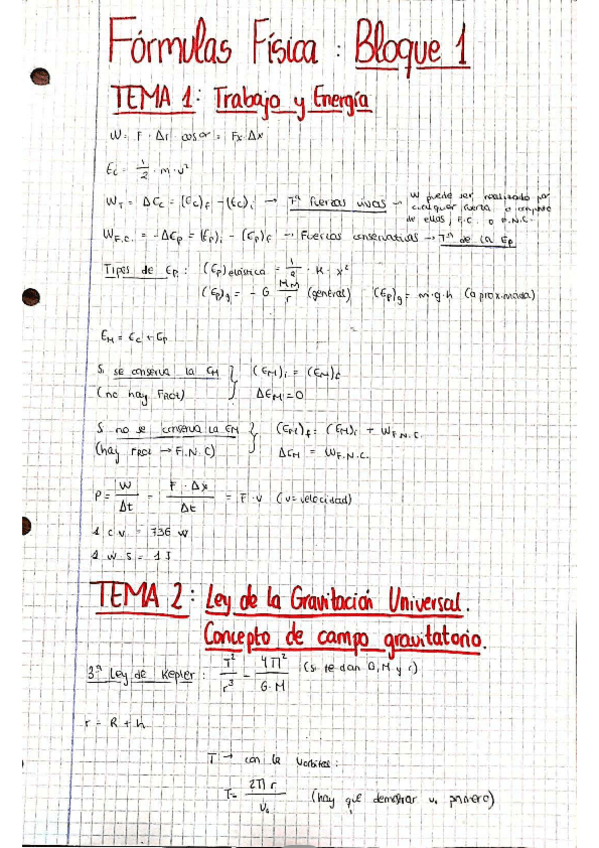 Fórmulas Física : Bloque 1
TEMA 1: Trabajo y Energía
W = F · Δr · cos α = Fx · Δx
Ec = 1/2 · m · v²
W_T = ΔEc = (Ec)f - (Ec)i → Tª fuerzas vivas → W puede ser realizado por cualquier fuerza o conjunto de ellas, F.C. o F.N.C.
W_F.C. = -ΔEp = (Ep)i - (Ep)f → Fuerzas conservativas → Tª de la Ep
Tipos de Ep : (Ep)elástica = 1/2 · K · x²
(Ep)g = - G Mm/r (general) (Ep)g = m·g·h (aproximada)
EM = Ec + Ep
Si se conserva la EM } (EM)i = (EM)f
(no hay FROZ) ΔEM = 0
Si no se conserva la EM } (EM)f = (EM)i + W_F.N.C.
(hay FROZ → F.N.C) ΔEM = W_F.N.C.
P = W/Δt = F · Δx/Δt = F · v (v = velocidad)
1 C V = 736 W
1 W s = 1 J
TEMA 2: Ley de la Gravitación Universal.
Concepto de campo gravitatorio.
3ª Ley de Kepler : T²/r³ = 4π²/G·M (si te dan G, M y r)
r = R + h
T → con la Vorbital :
T = 2π r/v₀ (hay que demostrar v₀ primero)